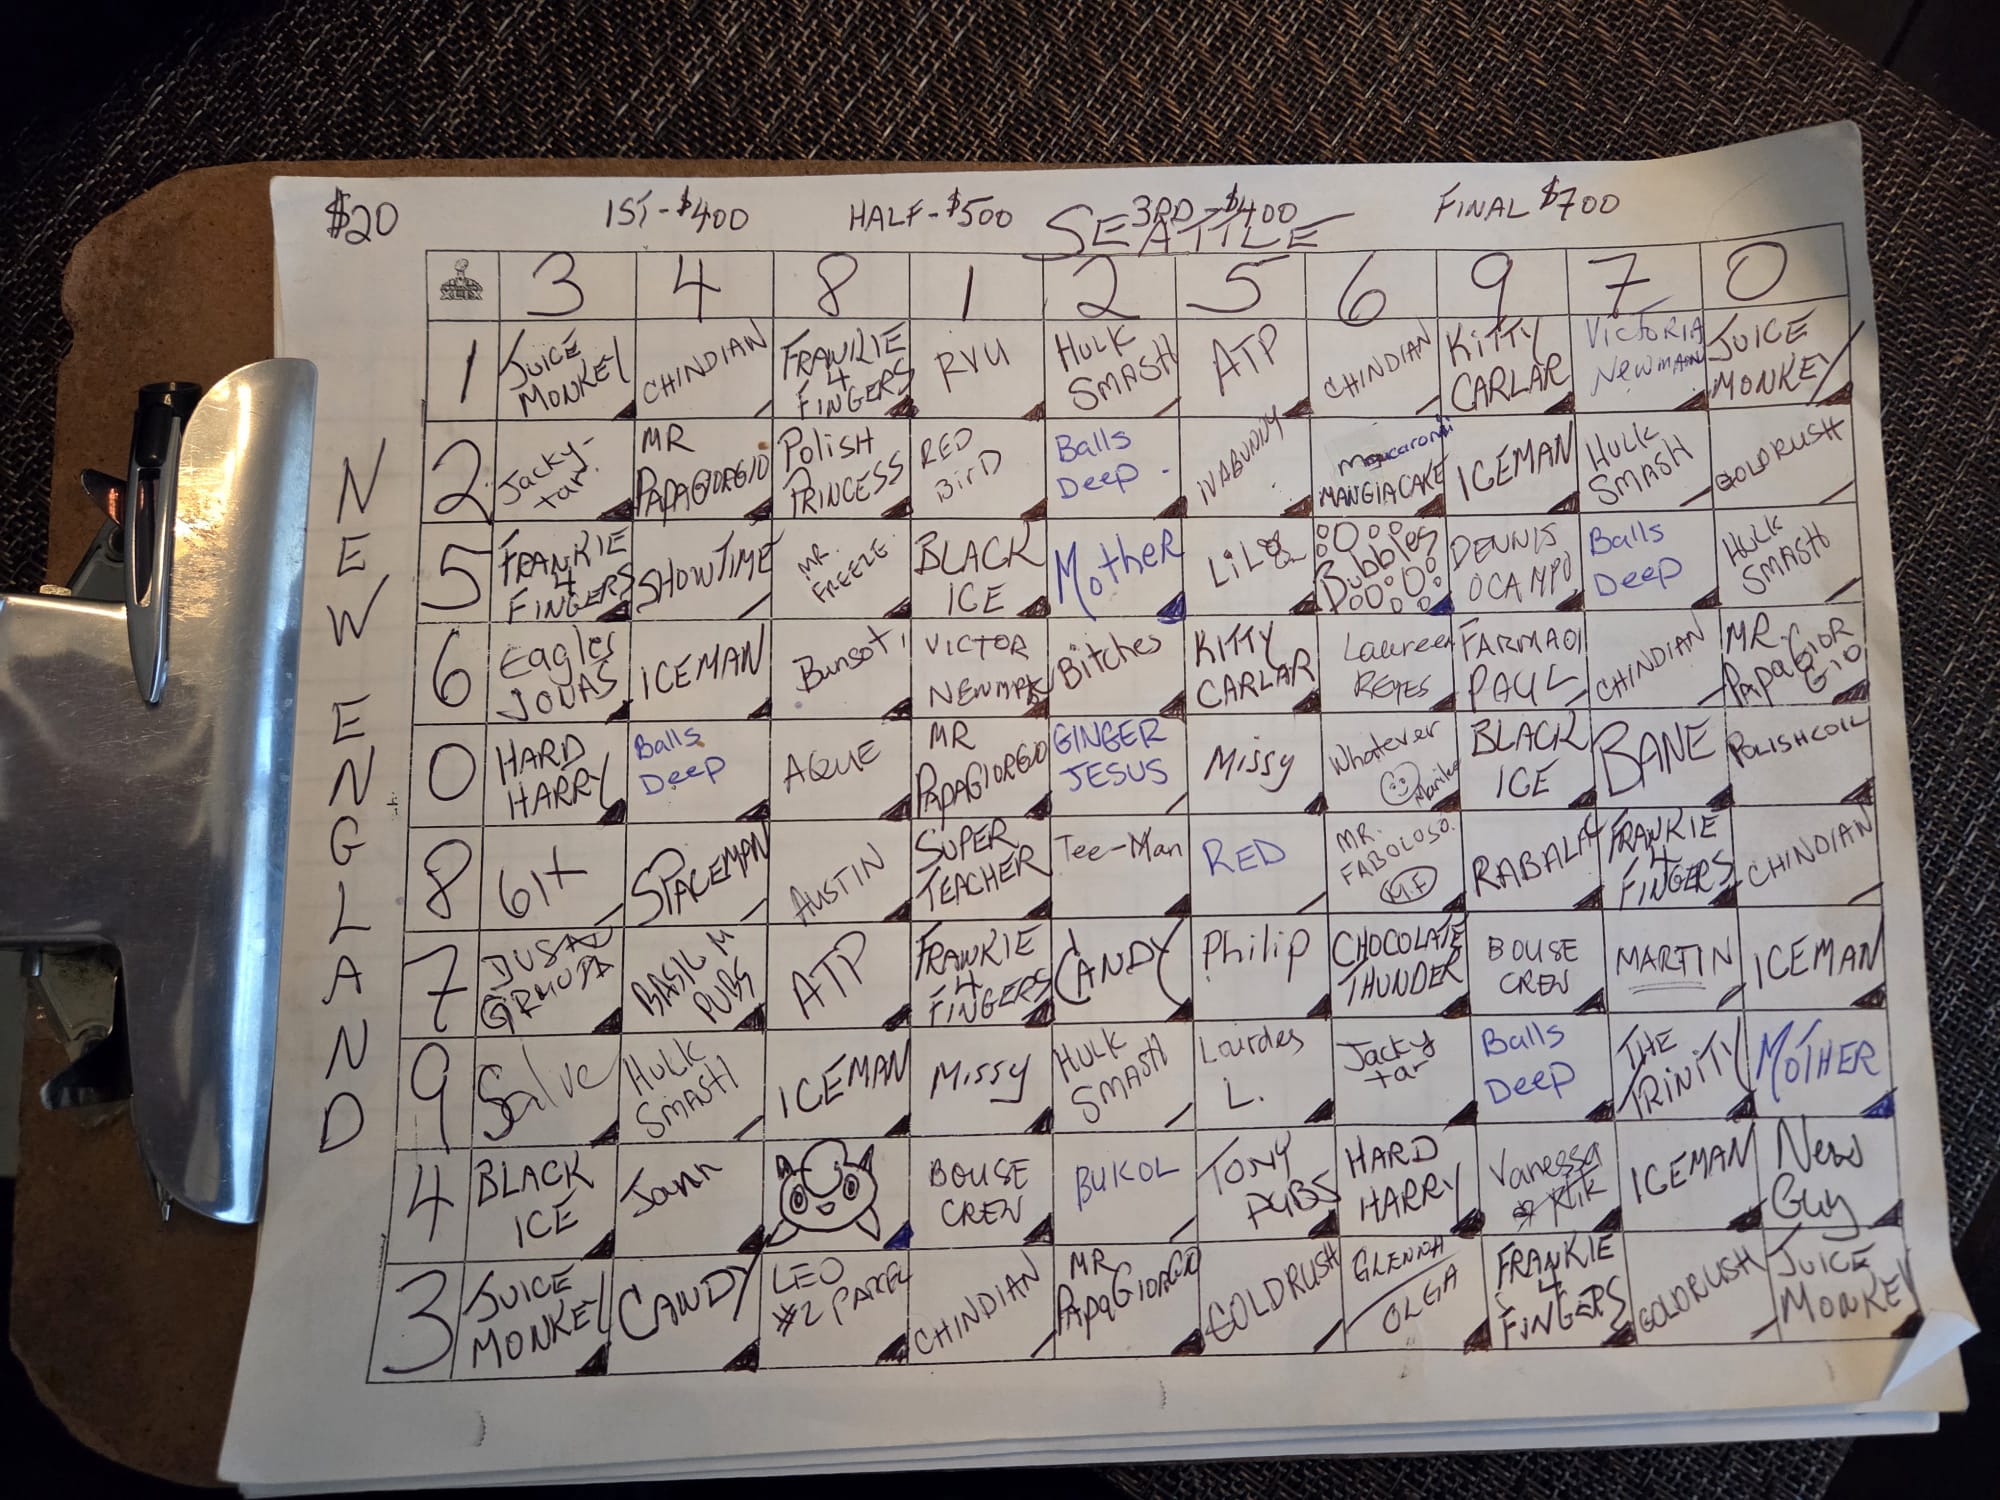 $20 1ST-$400 HALF-$500 3RD-$400 FINAL $700
SEATTLE
XLIX 3 4 8 1 2 5 6 9 7 0
NEW ENGLAND
1 JUICE MONKEY CHINDIAN FRANKIE 4 FINGERS RYU HULK SMASH ATP CHINDIAN KITTY CARLAR VICTORIA NEWMAN JUICE MONKEY
2 Jacky-tar MR PAPAGIORGIO POLISH PRINCESS RED BIRD Balls Deep IVABUNNY MANGIACAKE ICEMAN HULK SMASH GOLDRUSH
5 FRANKIE 4 FINGERS SHOWTIME MR. FREEZE BLACK ICE Mother LiL Bubbles DENNIS OCAMPO Balls Deep HULK SMASH
6 Eagles JONAS ICEMAN Bunsoti VICTOR Bitches KITTY CARLAR Laureen REYES PAUL CHINDIAN MR PAPAGIORGIO
0 HARD HARRY Balls Deep MR PAPAGIORGIO GINGER JESUS Missy Whatever BLACK ICE BANE POLISHCOIL
8 61+ SPACEMAN AUSTIN SUPER TEACHER Tee-Man RED MR. FABOLOSO. M.F RABALAY FRANKIE 4 FINGERS CHINDIAN
7 BASIL M PUBS ATP FRANKIE 4 FINGERS CANDY Philip CHOCOLATE THUNDER BOUSE CREW MARTIN ICEMAN
9 Salve HULK SMASH ICEMAN Missy HULK SMASH Lourdes L. Jacky tar Balls Deep THE TRINITY MOTHER
4 BLACK ICE Jann BOUSE CREW BUKOL TONY PUBS HARD HARRY Vanessa ICEMAN New Guy
3 JUICE MONKEY CANDY LEO #2 PARCEL CHINDIAN MR PAPAGIORGIO GOLDRUSH GLENNA/OLGA FRANKIE 4 FINGERS GOLDRUSH JUICE MONKEY